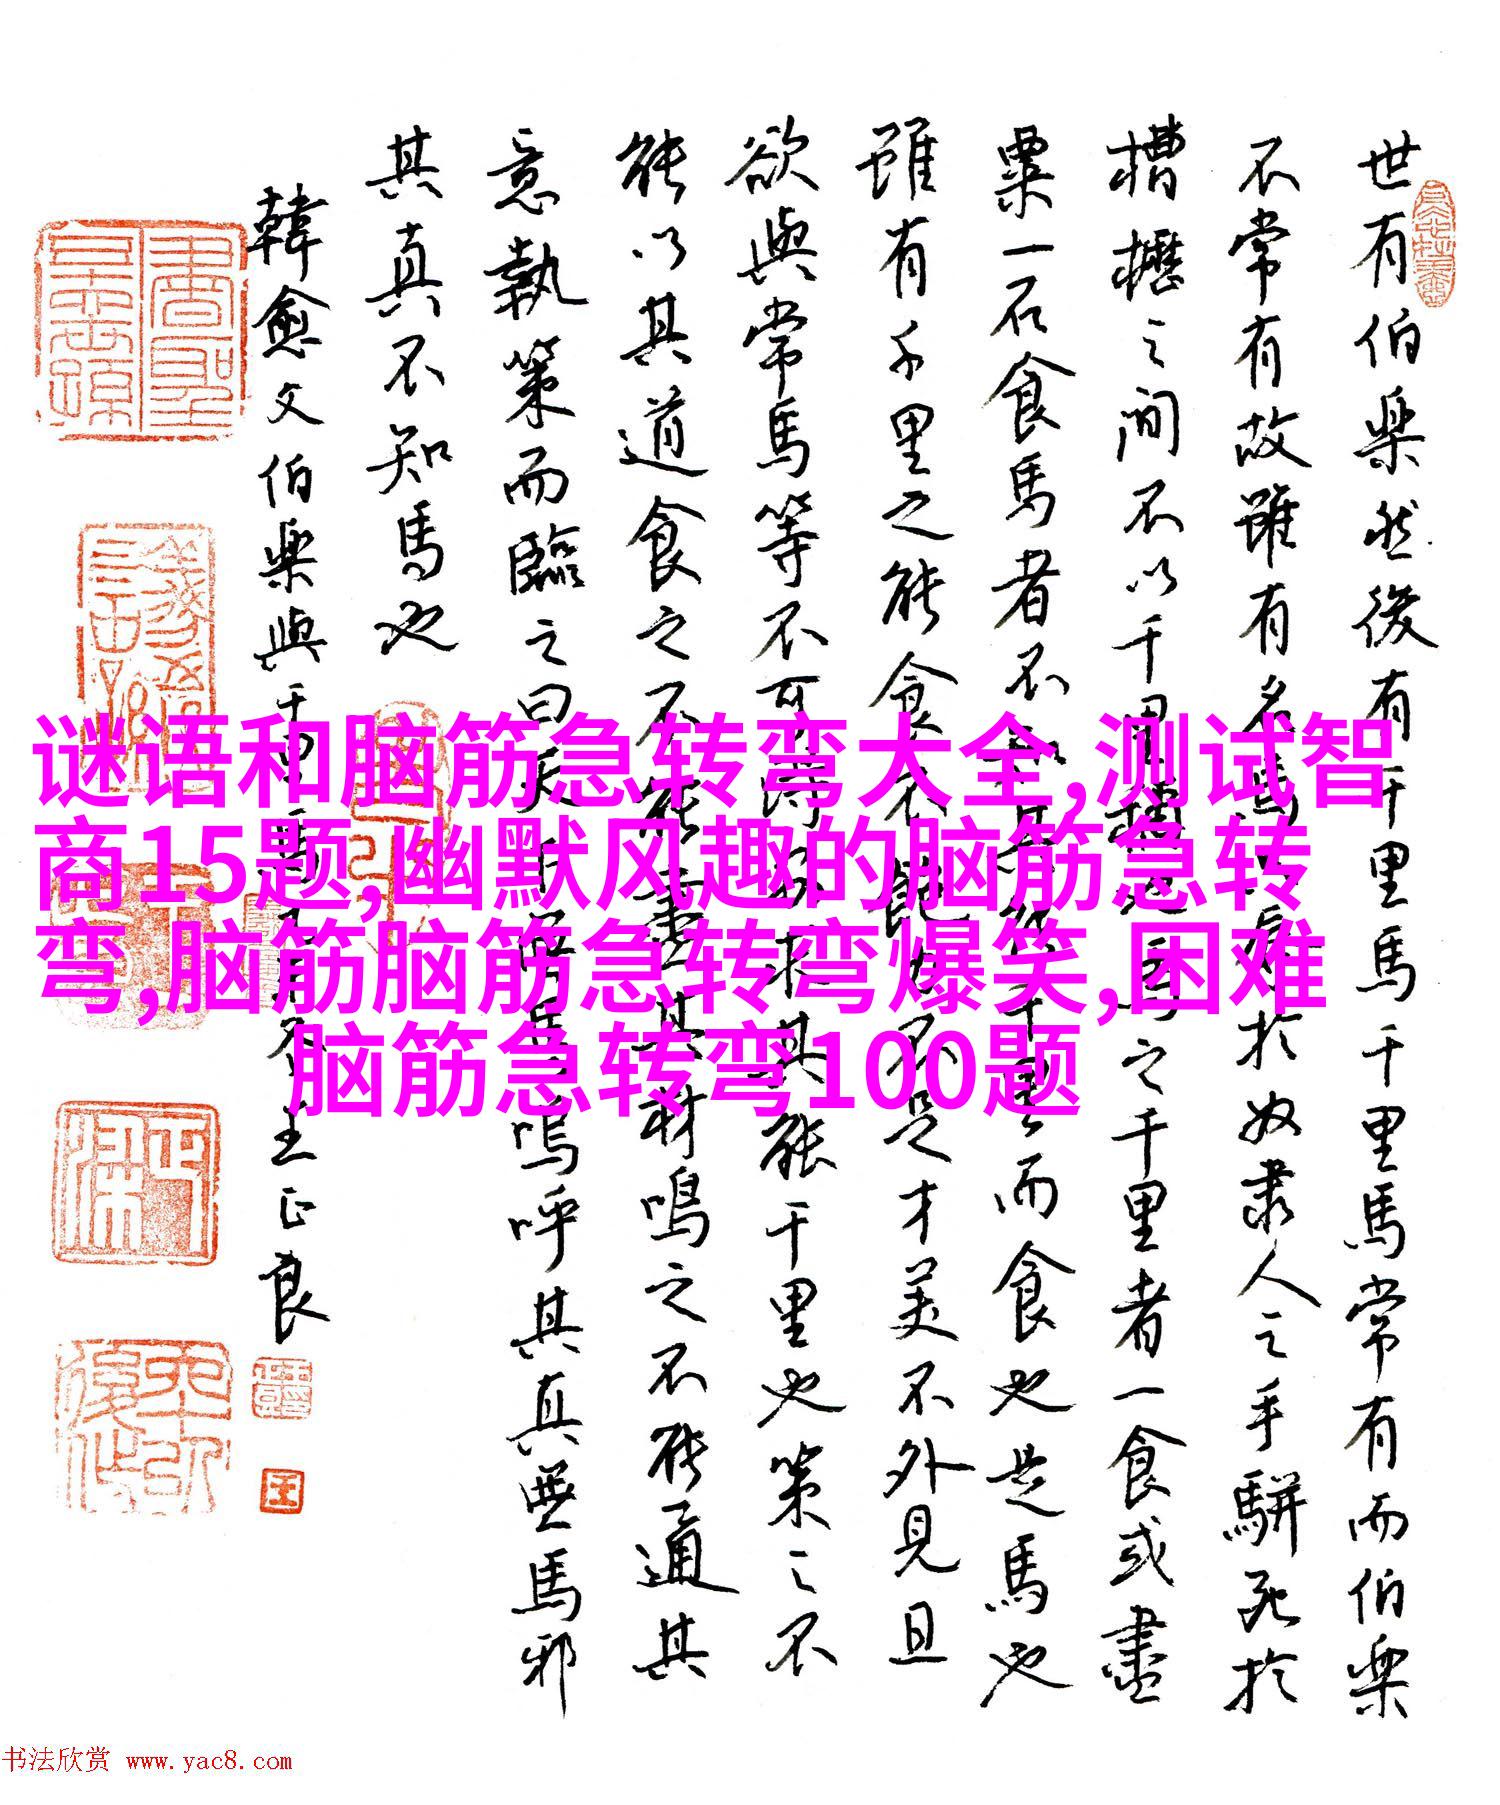 世有伯樂然後有千里馬千里馬常有而伯樂
不常有故雖有名馬辱於奴隶人之手駢死於
槽櫪之間不以千里稱也馬之千里者一食或盡
粟一石食馬者不知其能千里而食也是馬也
雖有千里之能食不飽力不足才美不外見且
欲與常馬等不可得求其能千里也策之不
能以其道食之不能盡其材鳴之不能通其
意執策而臨之曰天下無馬嗚呼其真無馬邪
其真不知馬也
韓愈文伯樂與千里馬王正良
谜语和脑筋急转弯大全,测试智
商15题,幽默风趣的脑筋急转
弯,脑筋脑筋急转弯爆笑,困难
脑筋急转弯100题
书法欣赏 www.yac8.com